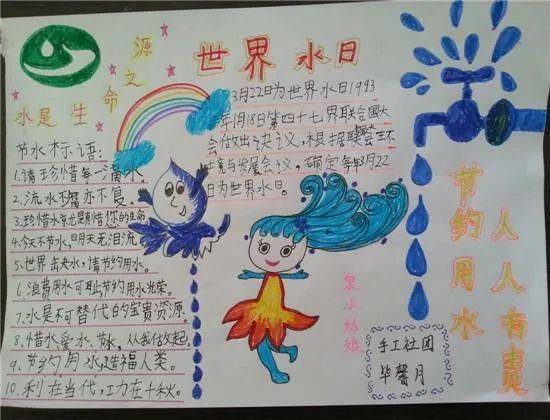 世界水日
水是生命之源
3月22日为世界水日1993
年1月18日第四十七界联合国大
会做出决议,根据联
境与发展会议,确定每年3月22
日为世界水日。
节水标语:
1.请珍惜每一滴水
2.流水不腐亦不复。
3.珍惜水就是珍惜您的生命
4.今天不节水,明天无泪流
5.世界出决水,请节约用水。
6.浪费用水可耻节约用水光荣。
7.水是不可替代的宝贵资源
8.惜水爱水、节水,从我做起
9.节约用水造福人类。
10.利在当代,功在千秋。
泉水姑娘
节约用水
人人有责
手工社团
毕馨月